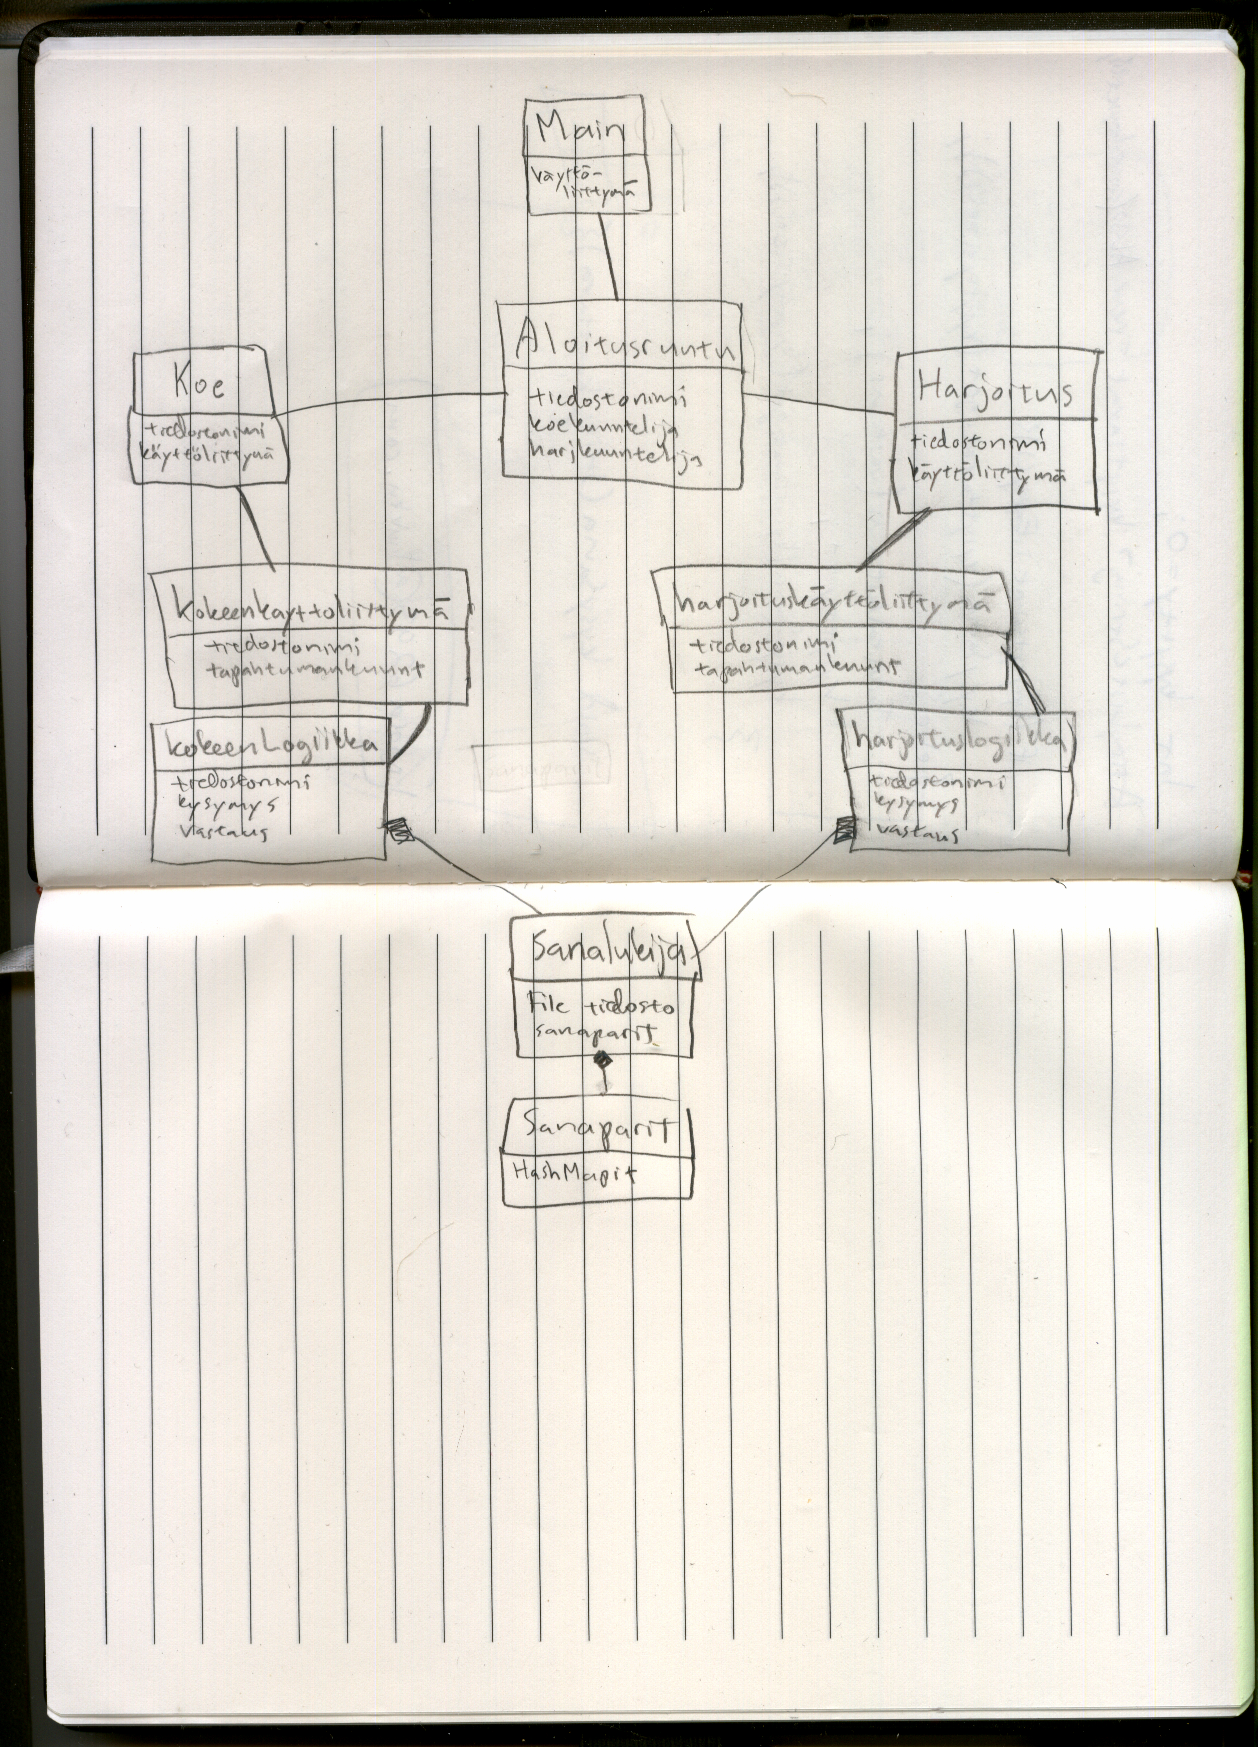 Main
väyttö-
liittymä
Aloitusruutu
tiedostonimi
koekuuntelija
harjkuuntelija
Koe
tiedostonimi
käyttöliittymä
Harjoitus
tiedostonimi
käyttöliittymä
kokeenkäyttöliittymä
tiedostonimi
tapahtumankuunt
harjoituskäyttöliittymä
tiedostonimi
tapahtumankuunt
kokeenLogiikka
tiedostonimi
kysymys
vastaus
harjoituslogiikka
tiedostonimi
kysymys
vastaus
Sanalukija
File tiedosto
sanaparit
Sanaparit
HashMapit